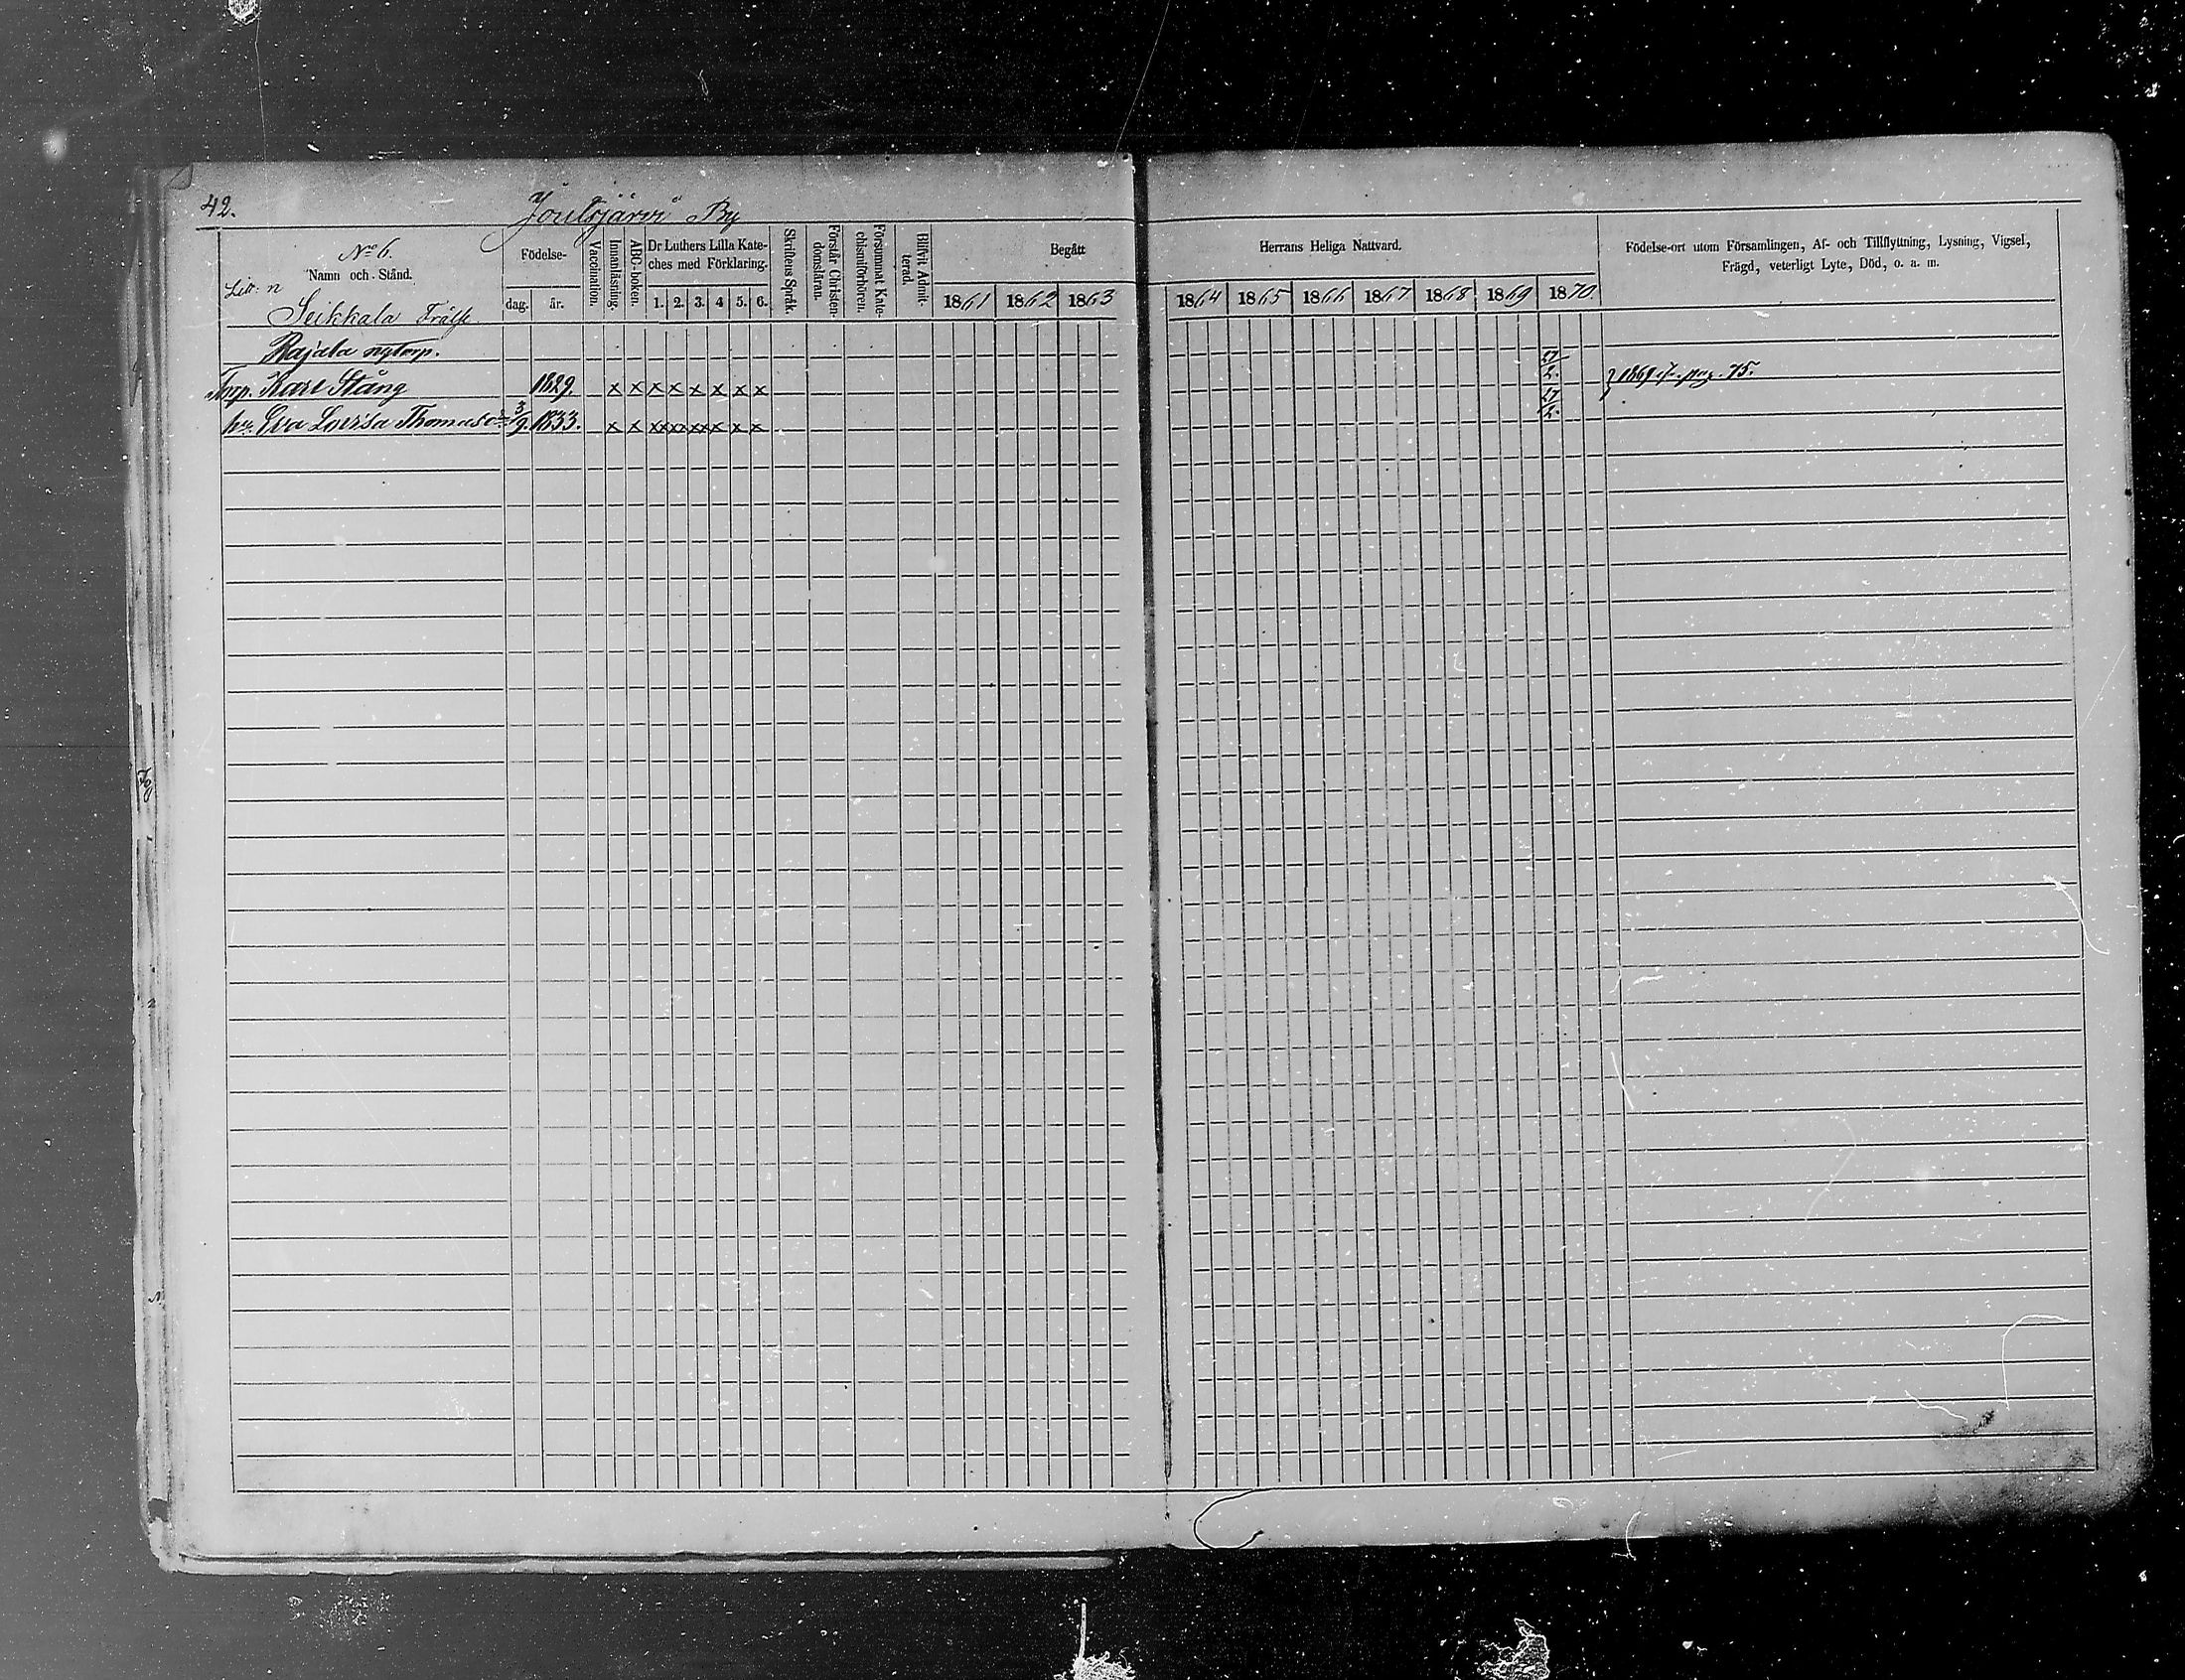 42.
Joutsjärvi By
No 6.
Namn och Stånd.
Litt: n
Seikkala Frälse
Födelse-
dag. år.
Vaccination.
Innanläsning.
ABC-boken.
Dr Luthers Lilla Kate-
ches med Förklaring.
1. 2. 3. 4 5. 6.
Skriftens Språk.
Förstår Christen-
domsläran.
Försummat Kate-
chismiförhören.
Blifvit Admit-
terad.
Begått
1861 1862 1863
Herrans Heliga Nattvard.
1864 1865 1866 1867 1868 1869 1870.
Födelse-ort utom Församlingen, Af- och Tillflyttning, Lysning, Vigsel,
Frägd, veterligt Lyte, Död, o. a. m.
Rajala nytorp.
Torp. Karl Stång 1829. x x x x x x x x 27/2. 1869 fr. pag. 75.
hu. Eva Lovisa Thomasdr 3/9. 1833. x x xx xx xx x x x 27/2.